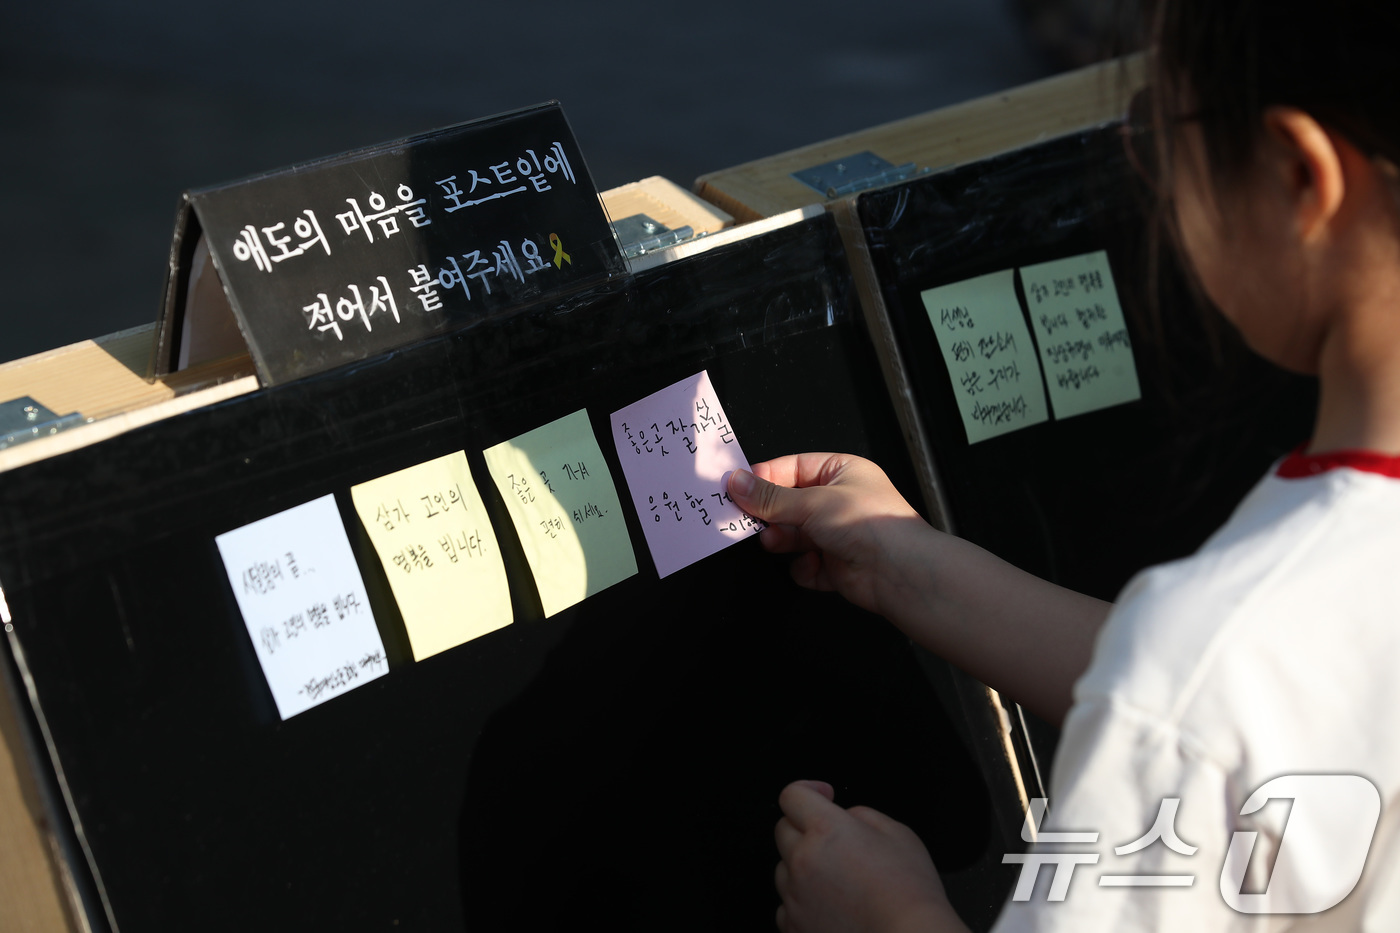 애도의 마음을 포스트잍에
적어서 붙여주세요
삼가 고인의
명복을 빕니다.
좋은 곳 가셔
편히 쉬세요.
좋은곳 잘가시길
응원할게
삼가 고인의 명복을 빕니다.
선생님
편히 잠드소서
남은 우리가
바꾸겠습니다.
삼가 고인의 명복을
빕니다
바랍니다
뉴스1